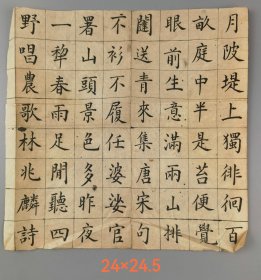 月陂堤上獨徘徊百
畝庭中半是苔便覺
眼前生意滿兩山排
闥送青來集唐宋句
不衫不履任婆娑官
署山頭景色多昨夜
一犁春雨足閒聽四
野唱農歌林兆麟詩
24×24.5